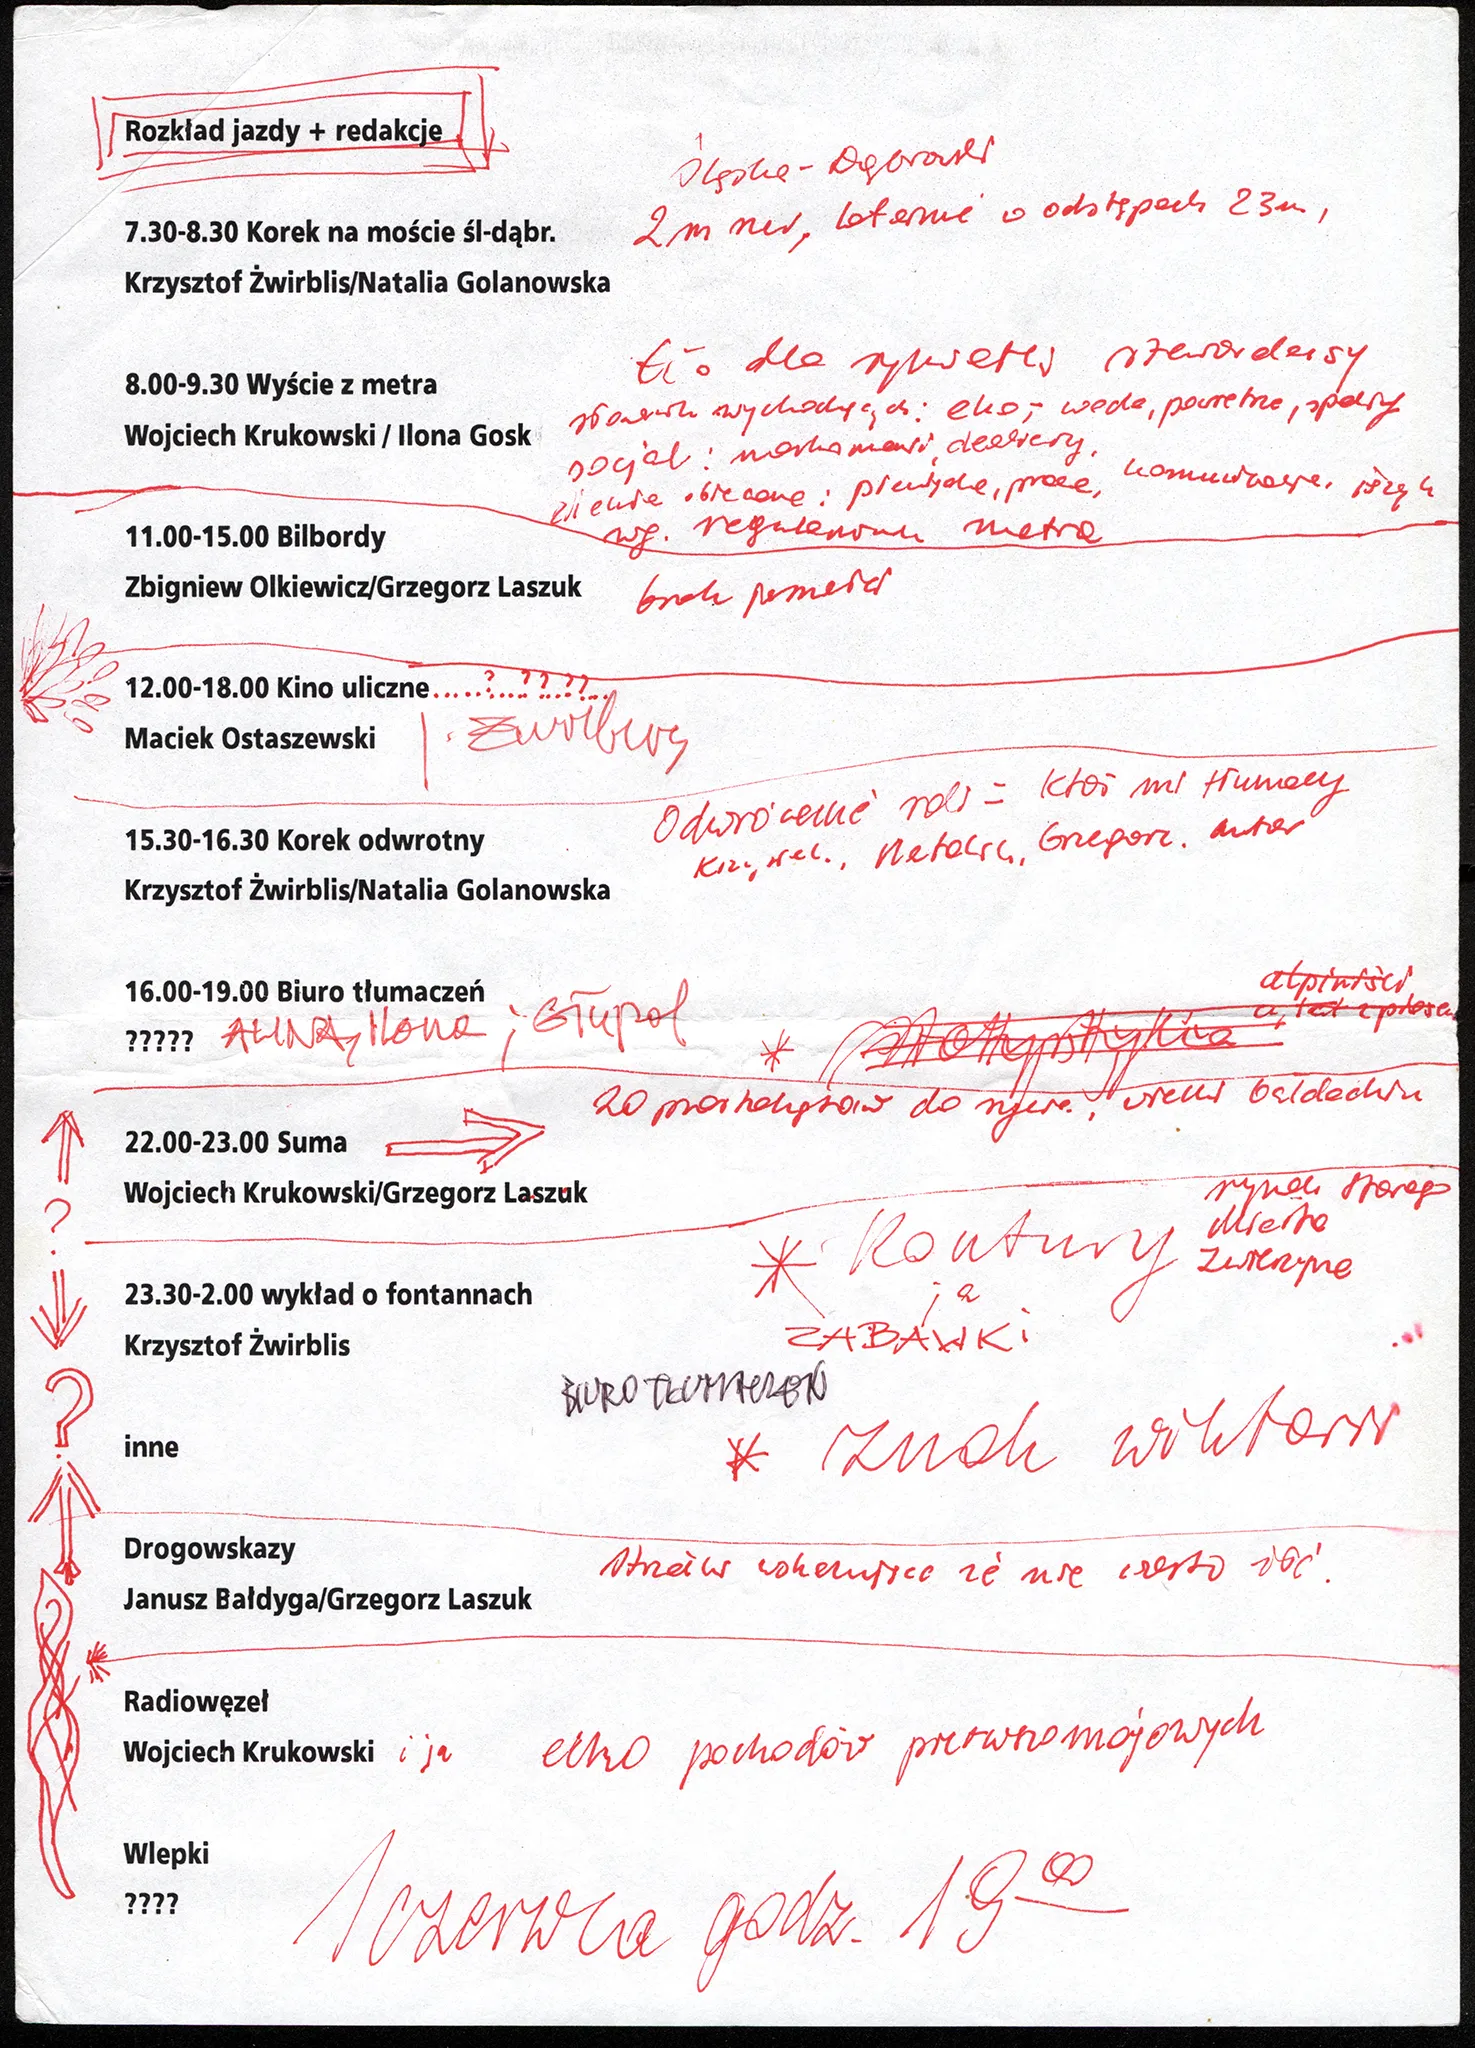 Rozkład jazdy + redakcje
Śląsko-Dąbrowski
7.30-8.30 Korek na moście śl-dąbr.
2 m nad, latarnie w odstępach 23m,
Krzysztof Żwirblis/Natalia Golanowska
tło dla sylwetki stewardessy
8.00-9.30 Wyście z metra
wychodzących: eko, - woda, powietrze, spaliny
Wojciech Krukowski / Ilona Gosk
socjal: narkomani, dealerzy,
ziemia obiecana: pieniądze, praca, komunikacja.
wg. regulaminu metra
11.00-15.00 Bilbordy
Zbigniew Olkiewicz/Grzegorz Laszuk
brak pamięci
12.00-18.00 Kino uliczne.....?...??.??..
Maciek Ostaszewski
Odwrócenie roli = ktoś mi tłumaczy
15.30-16.30 Korek odwrotny
Krzysiek., Natalia, Grzegorz. autor
Krzysztof Żwirblis/Natalia Golanowska
alpiniści
16.00-19.00 Biuro tłumaczeń
????? ALINA, Ilona ; GŁUPOL
20 prostokątów do, wielki baldachim
22.00-23.00 Suma
Wojciech Krukowski/Grzegorz Laszuk
rynek Starego
Kontury
Miasta
Zwierzyna
23.30-2.00 wykład o fontannach
ZABAWKI
Krzysztof Żwirblis
BIURO TŁUMACZEŃ
inne
znak wiktorii
Drogowskazy
strzałki wskazujące że nie warto iść.
Janusz Bałdyga/Grzegorz Laszuk
Radiowęzeł
Wojciech Krukowski i ja echo pochodów pierwszomajowych
Wlepki
????
1 czerwca godz. 19⁰⁰